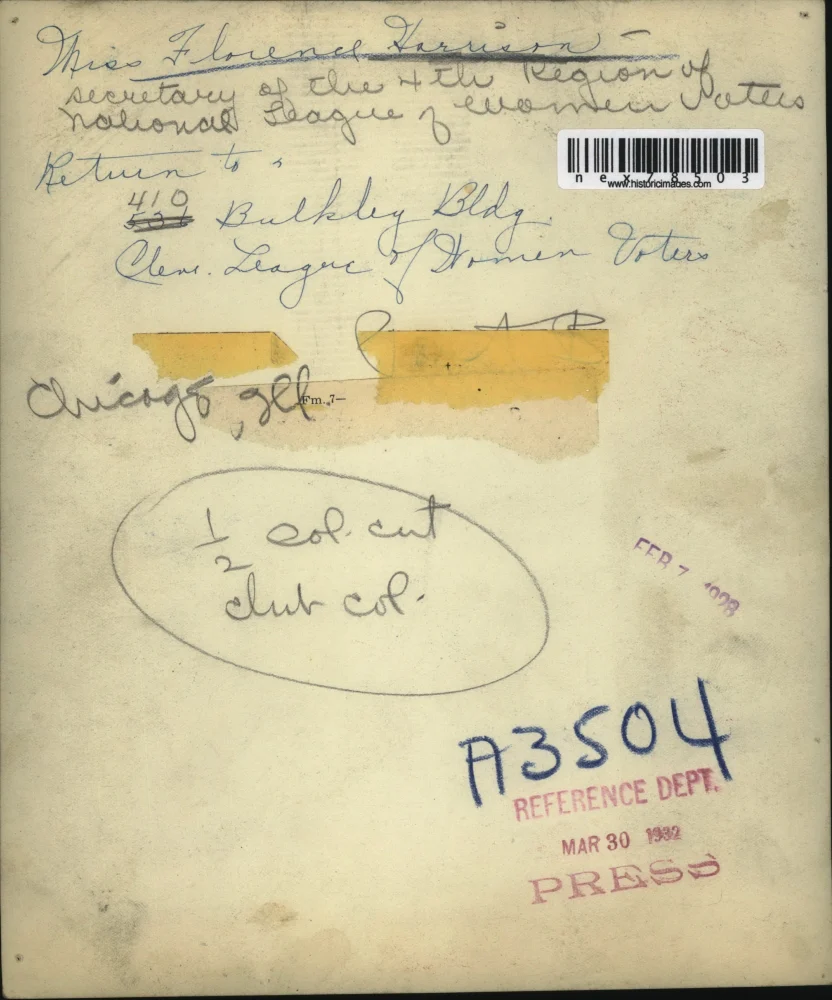 Miss Florence Harrison —
secretary of the 4th Region of
National League of Women Voters
Return to
410
Bulkley Bldg.
Clev. League of Women Voters
nex78503
www.historicimages.com
Chicago, Ill
Fm. 7—
1/2 col. cut
club col.
FEB 7 1928
A3504
REFERENCE DEPT.
MAR 30 1932
PRESS